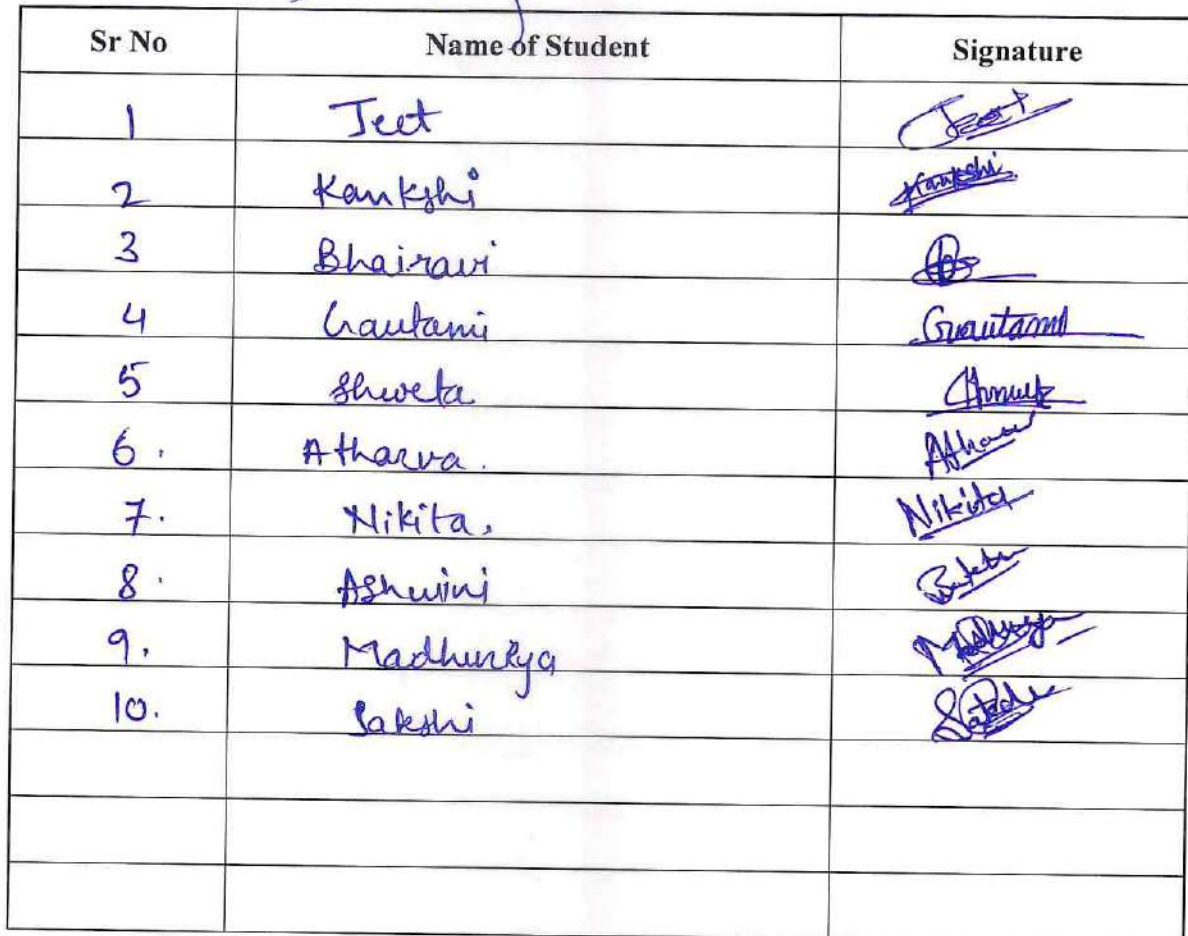 Sr No Name of Student Signature
1 Jeet Jeet
2 Kankshi Kankshi
3 Bhairavi
4 Gautami Gautami
5 Shweta
6. Atharva. Atharv
7. Nikita. Nikita
8. Ashwini
9. Madhuriya
10. Sakshi